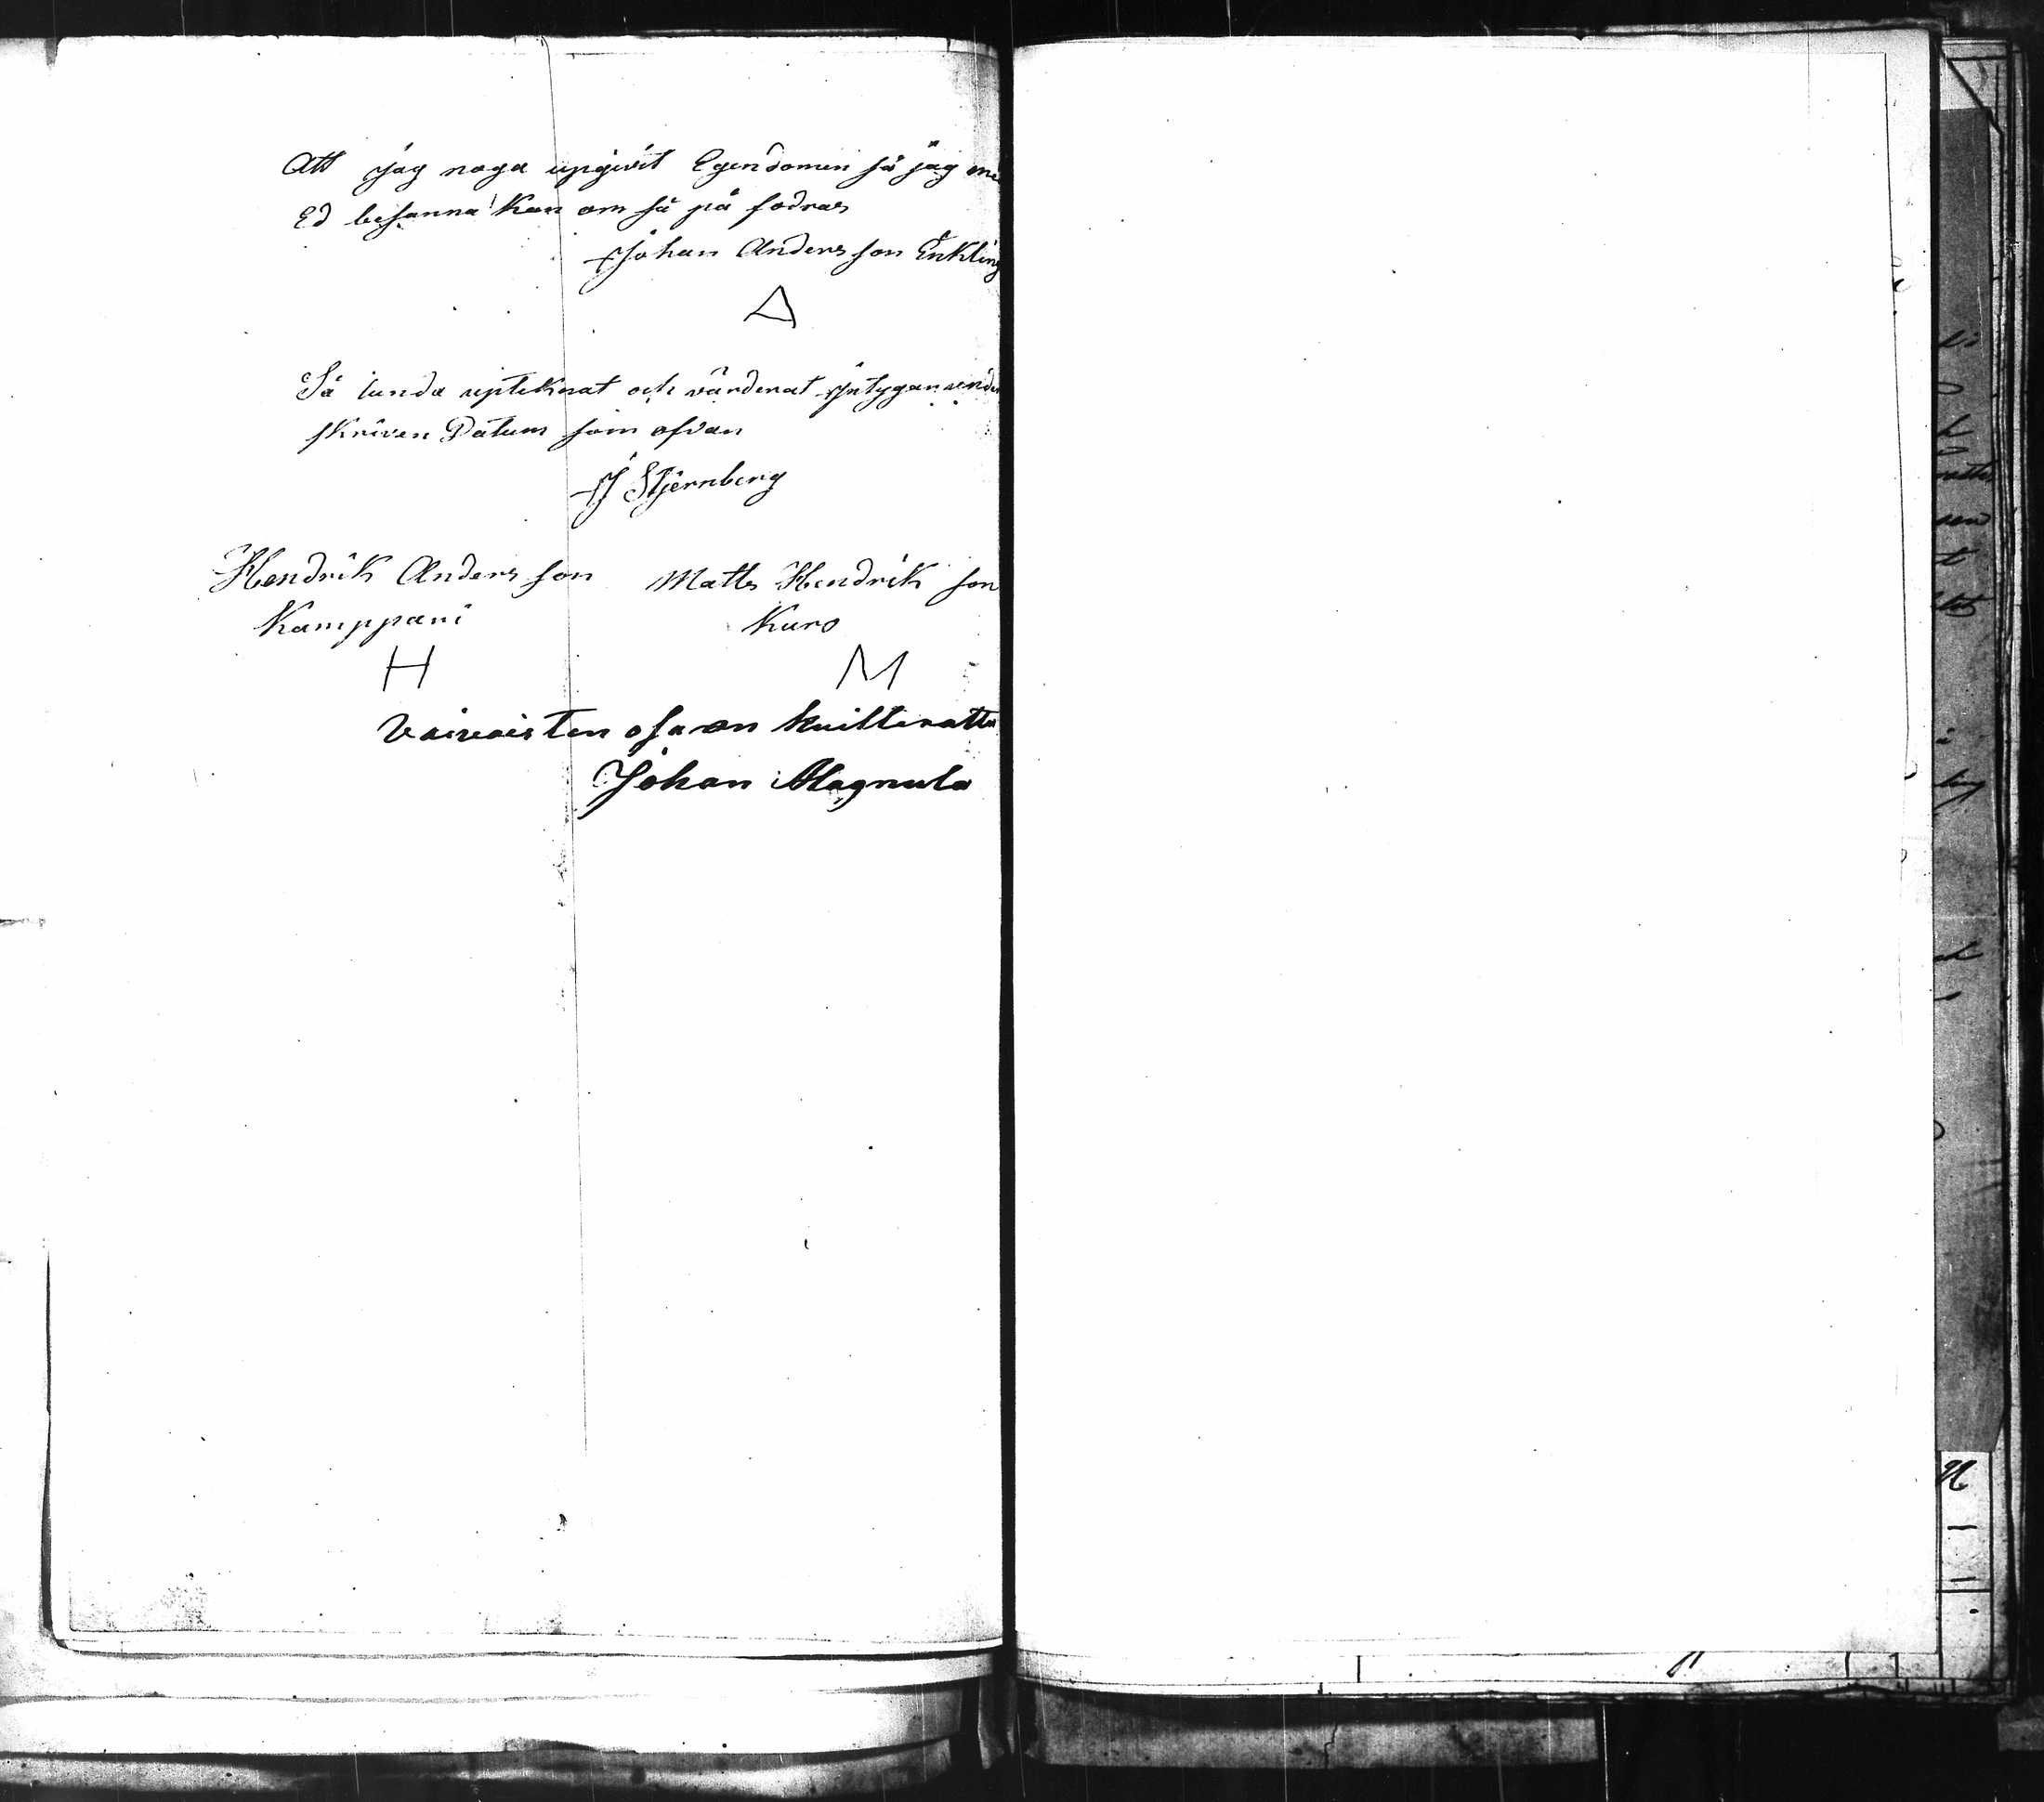 Att Jag noga upgivit Egendomen så jag me
Ed besanna kan om så på fodras
Johan Andersson Enkling
Så lunda upteknat och värderat Jntygar under
skriven Datum som ofvan
J Stjernberg
Hendrik Anders son Matts Hendrik son
Kamppani Kuro
H M
Vaivaisten osa on kvitterattu
Johan Magnula